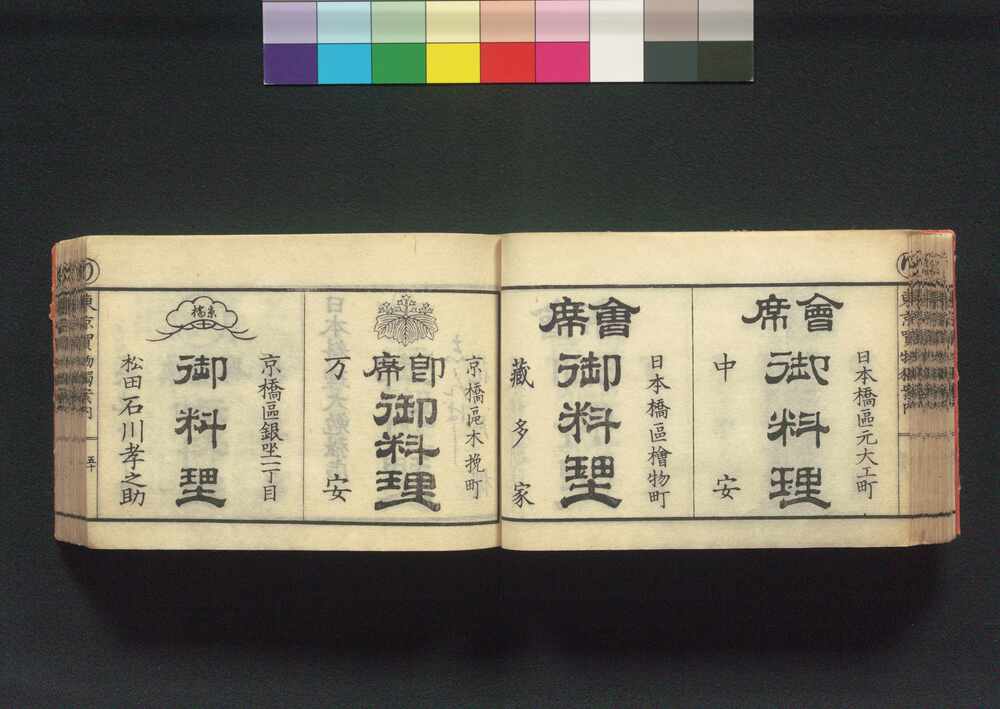 日本橋區元大工町
會席
御料理
中安
日本橋區檜物町
會席
御料理
藏多家
京橋區木挽町
即席
御料理
万安
京橋區銀座二丁目
京橋
御料理
松田石川孝之助
東京買物獨案内
五十